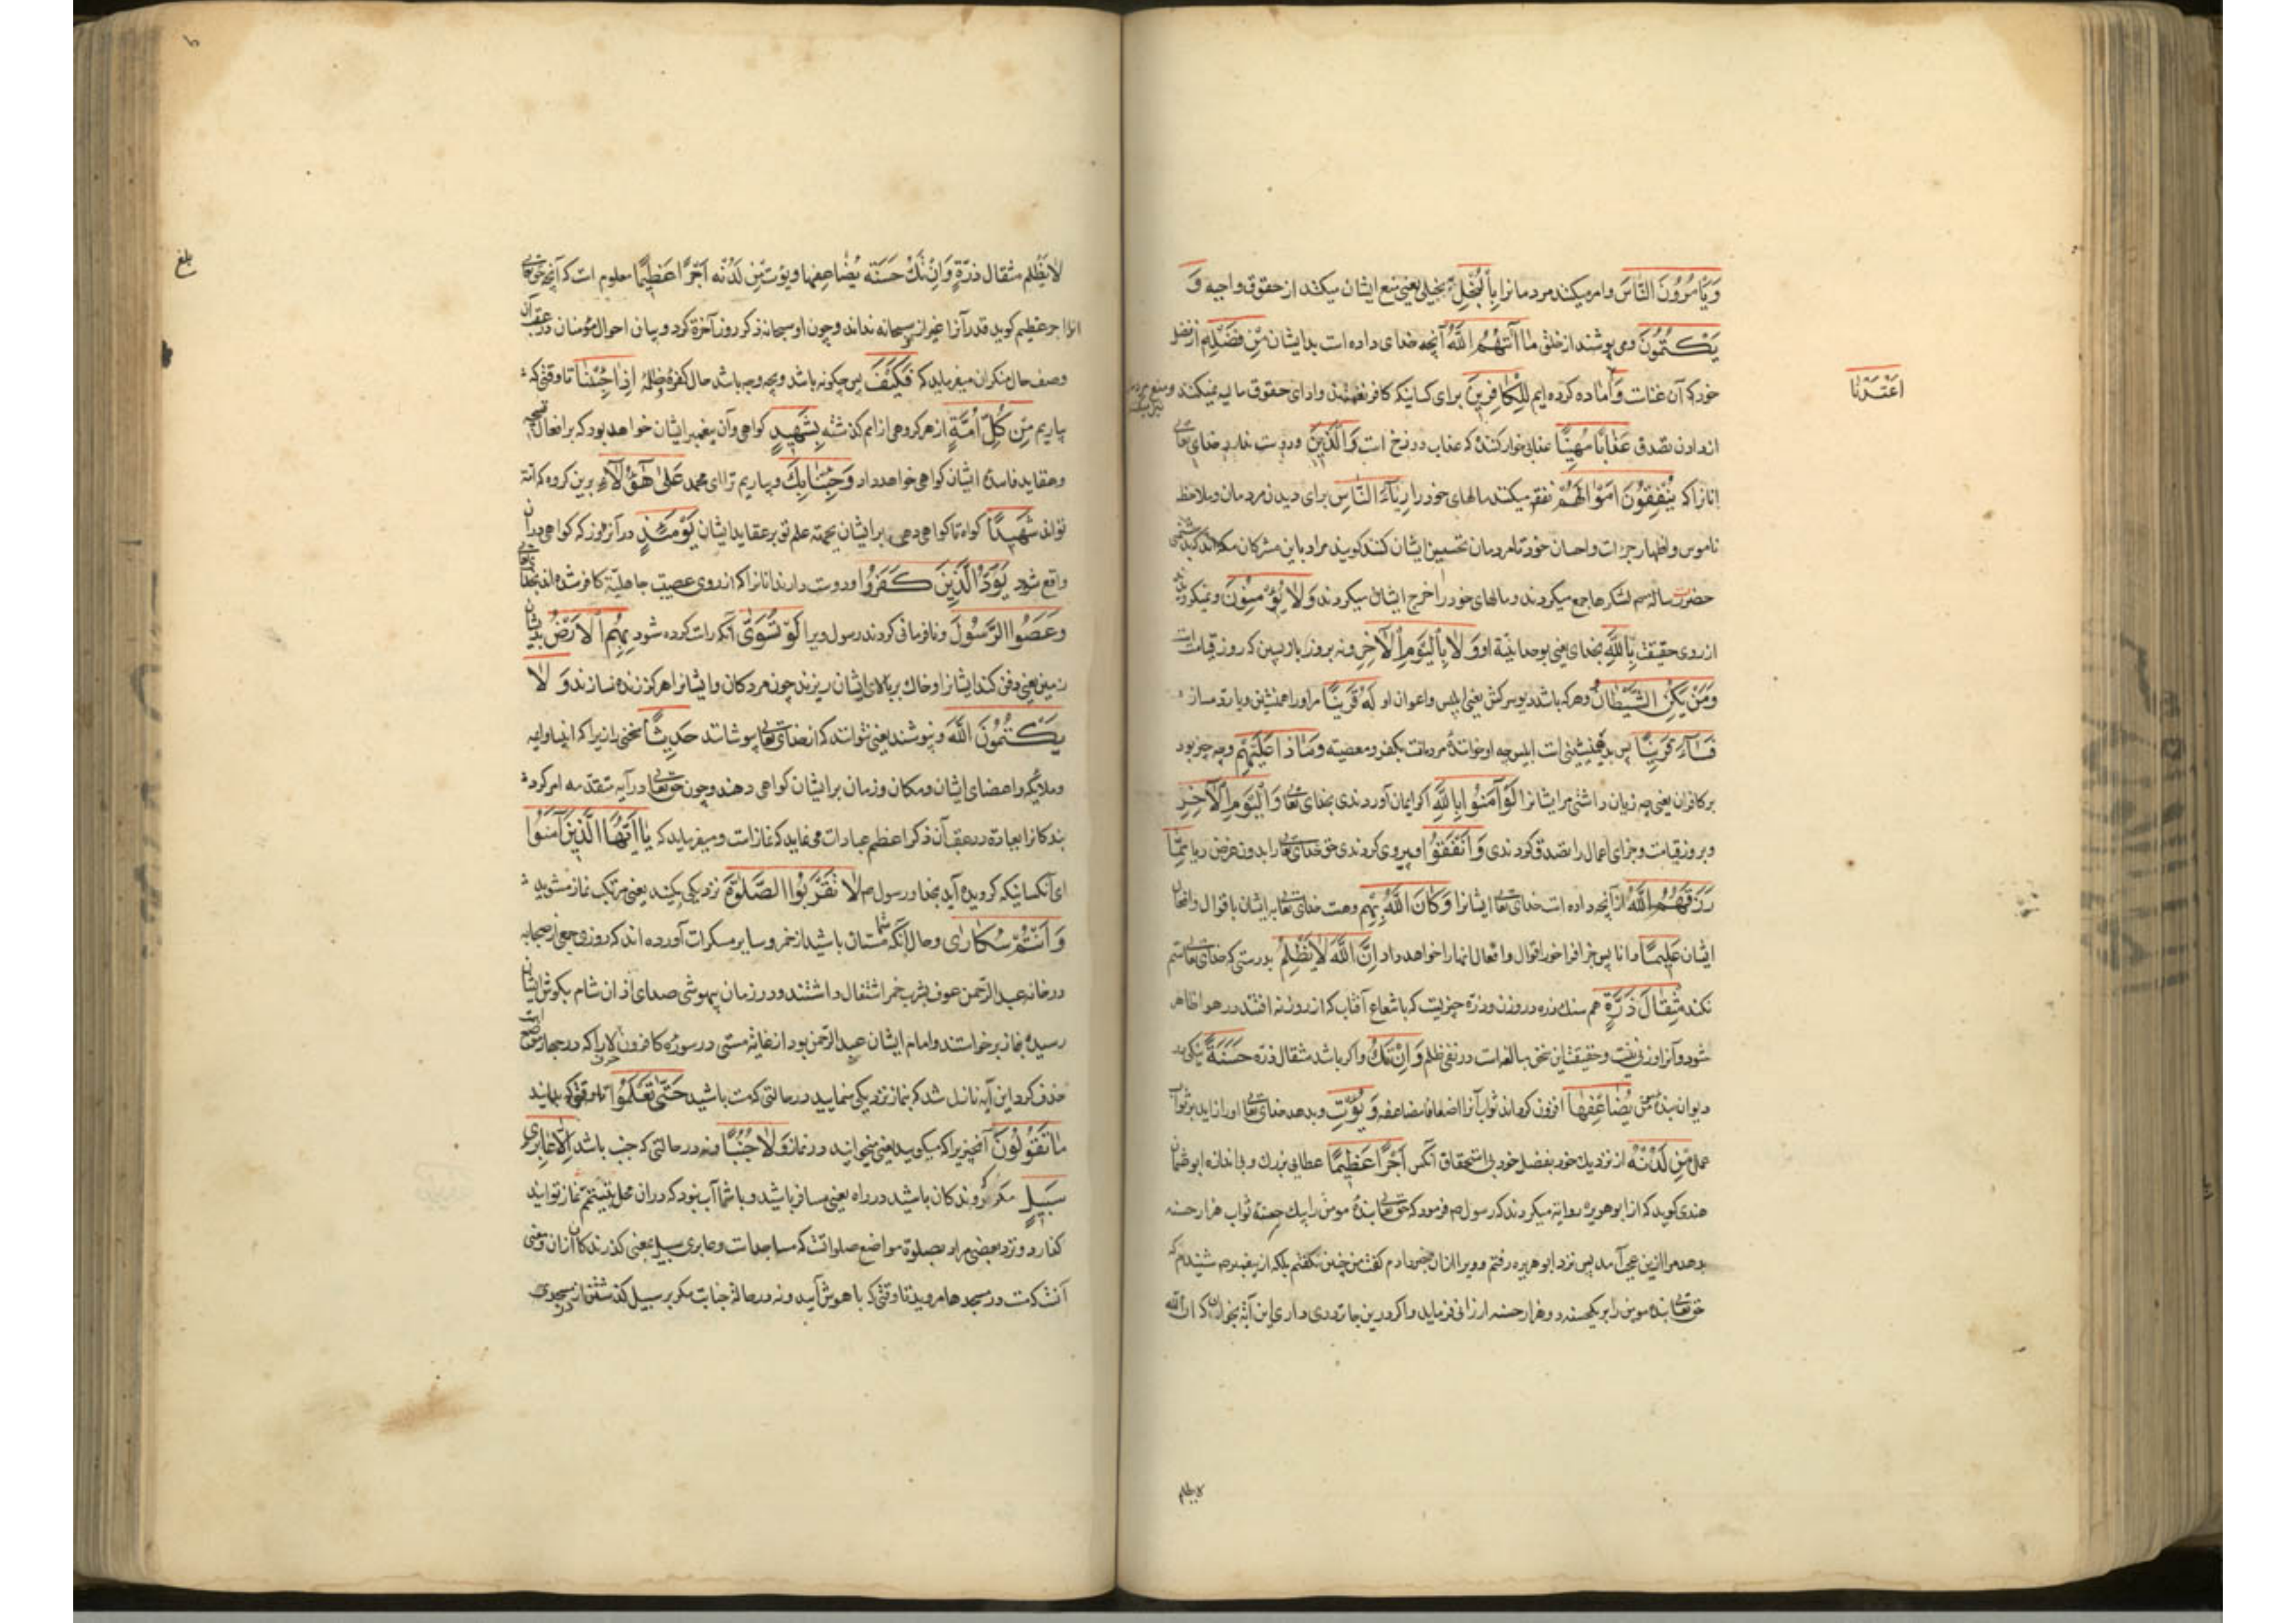 وَيَأْمُرُونَ النَّاسَ وامر میکنند مردمانرا بِالْبُخْلِ بخیلی یعنی منع ایشان میکنند از حقوق واجبه وَ
يَكْتُمُونَ ومی پوشند از خلق مَا آتَيهُمُ اللَّهُ آنچه خدای داده است بدیشان مِنْ فَضْلِهِ از فضل
خود که آن غنات وَ آماده کرده ایم لِلْكَافِرِينَ برای کسانیکه کافر نعمتند وادای حقوق مالیه نمیکنند ومنع مردم
اعْتَدْنَا
از دادن تصدق عَذَابًا مُهِينًا عذابی خوار کننده که عذاب دوزخ است وَالَّذِينَ ودوست ندارد خدای تعالی
انانرا که يُنْفِقُونَ اَمْوَالَهُمْ نفقه میکنند مالهای خود را رِئَاءَ النَّاسِ برای دیدن مردمان وملاحظه
ناموس واظهار جرات واحسان خود تا مردمان تحسین ایشان کنند کویند مراد باین مشرکان مکه اند که
حضرت رساله لشکرها جمع میکردند ومالهای خود را خرج ایشان میکردند وَلَا يُؤْمِنُونَ ونمیکروند
از روی حقیقت بِاللَّهِ بخدای یعنی بوحدانیة او وَلَا بِالْيَوْمِ الْآخِرِ ونه بروز بازپسین که روز قیامت است
وَمَنْ يَكُنِ الشَّيْطَانُ وهر که باشد دیو سرکش یعنی ابلیس واعوان او لَهُ قَرِينًا مر او را همنشین ویار دمساز
فَسَاءَ قَرِينًا پس بد همنشینی است ابلیس چه او خواننده مردمانست بکفر ومعصیة وَمَاذَا عَلَيْهِمْ وچه چیز بود
بر کافران یعنی چه زیان داشتی مر ایشانرا لَوْ آمَنُوا بِاللَّهِ اگر ایمان آوردندی بخدای تعالی وَالْيَوْمِ الْآخِرِ
وبروز قیامت وجزای اعمال را تصدیق کردندی وَاَنْفَقُوا وپیروی کردندی حق خدای تعالی را بدون غرض ریا مِمَّا
رَزَقَهُمُ اللَّهُ از آنچه داده است خدای تعالی ایشانرا وَكَانَ اللَّهُ بِهِمْ وهست خدای تعالی به ایشان باقوال وافعال
ایشان عَلِيمًا دانا پس جزا فراخور اقوال وافعال انها را خواهد داد اِنَّ اللَّهَ لَا يَظْلِمُ بدرستی که خدای تعالی ستم
نکند مِثْقَالَ ذَرَّةٍ هم سنک ذره در وزن وذرة چیزیست که با شعاع آفتاب که از روزنه افتد در هوا ظاهر
شود وآنرا وزنی نیست وحقیقت این سخن مبالغه است در نفی ظلم وَاِنْ تَكُ واکر باشد مثقال ذرة حَسَنَةً نیکی در
دیوان بنده مؤمن يُضَاعِفْهَا افزون کرداند ثواب آنرا اضعافا مضاعفه وَيُؤْتِ وبدهد خدای تعالی او را زاید بر ثواب
عمل مِنْ لَدُنْهُ از نزدیک خود بفضل خود بی استحقاق آنکس اَجْرًا عَظِيمًا عطایی بزرك وبی اندازه ابو عثمان
هندی کوید که از ابو هریره روایة میکردند که رسول ص فرمود که حق تعالی بنده مومن را بیك حسنه ثواب هزار حسنه
بدهد مرا ازین عجب آمد پس نزد ابو هریره رفتم وویرا از ان خبر دادم کفت من چنین نکفتم بلکه از پیغمبر ص شنیدم که
حق تعالی بنده مومن را بر یکحسنه دو هزار حسنه ارزانی فرماید واکر درین جا ترددی داری این آیه بخوان که ان الله
لا یظلم
لَا يَظْلِمُ مثقال ذَرَّةٍ وَاِنْ تَكُ حَسَنَة يُضَاعِفها ويؤت مِنْ لَدُنْه اَجْرًا عَظِيمًا معلوم است که آنچه حق تعالی
انرا اجر عظیم کوید قدر آنرا غیر از سبحانه نداند وچون او سبحانه ذکر روز آخرة کرد وبیان احوال مؤمنان در عقب آن
وصف حال منکران میفرماید که فَكَيْفَ پس چکونه باشد وبچه وجه باشد حال کفره وظلمه اِذَا جِئْنَا تا وقتی که
بیاریم مِنْ كُلِّ اُمَّةٍ از هر کروهی از امم کذشته بِشَهِيدٍ کواهی وآن پیغمبر ایشان خواهد بود که بر افعال
وعقاید فاسده ایشان کواهی خواهد داد وَجِئْنَا بِكَ وبیاریم ترا ای محمد عَلَى هَؤُلَاءِ برین کروه که امة
تواند شَهِيدًا کواه تا کواهی دهی بر ایشان بجهة علم تو بر عقاید ایشان يَوْمَئِذٍ در آنروز که کواهی در ان
واقع شود يَوَدُّ الَّذِينَ كَفَرُوا دوست دارند انانرا که از روی عصبیت جاهلیة کافر شده اند بخدا
وَعَصَوُا الرَّسُولَ ونافرمانی کردند رسول ویرا لَوْ تُسَوَّى آنکه راست کرده شود بِهِمُ الْاَرْضُ بدیشان
زمین یعنی دفن کنند ایشانرا وخاك بر بالای ایشان ریزند چون مردکان وایشانرا هرکز زنده نسازند وَلَا
يَكْتُمُونَ اللَّهَ ونپوشند یعنی نتوانند که از خدای تعالی بپوشانند حَدِيثًا سخنی را زیرا که انبیا واوایه
وملائکه واعضای ایشان ومکان وزمان بر ایشان کواهی دهند وچون حق تعالی در آیه متقدمه امر کرد
بندکانرا بعبادة در عقب آن ذکر اعظم عبادات می نماید که نماز است ومیفرماید که يَا اَيُّهَا الَّذِينَ آمَنُوا
ای آنکسانیکه کرویده آید بخدا ورسول ص لَا تَقْرَبُوا الصَّلَوةَ نزدیکی مکنید یعنی مرتکب نماز مشوید
وَاَنْتُمْ سُكَارَى وحال آنکه شما مستان باشید از خمر وسایر مسکرات آورده اند که روزی جمعی از صحابه
در خانه عبد الرحمن عوف بشرب خمر اشتغال داشتند ودر زمان بیهوشی صدای اذان شام بکوش ایشان
رسیده بنماز برخواستند وامام ایشان عبد الرحمن بود از غایة مستی در سوره کافرون لا را که در چهار موضع است
حذف کرد این آیه نازل شد که بنماز نزدیکی منمایید در حالتی که مست باشید حَتَّى تَعْلَمُوا تا وقتی که بدانید
مَا تَقُولُونَ آنچیز را که میکویید یعنی میخوانید در نماز وَلَا جُنُبًا ونه در حالتی که جنب باشد اِلَّا عَابِرِي
سَبِيلٍ مکر که روندکان باشید در راه یعنی مسافر باشید وبا شما آب نبود که دران محل بتیمم نماز توانید
کذارد ونزد بعضی مراد بصلوة مواضع صلواتست که مساجد است وعابری سبیل بمعنی کذرندکان از ان ومعنی
آنست که مست در مسجدها مروید تا وقتی که با هوش آیید ونه در حالة جنابت مکر بر سبیل کذشتن از مسجدی
بلغ